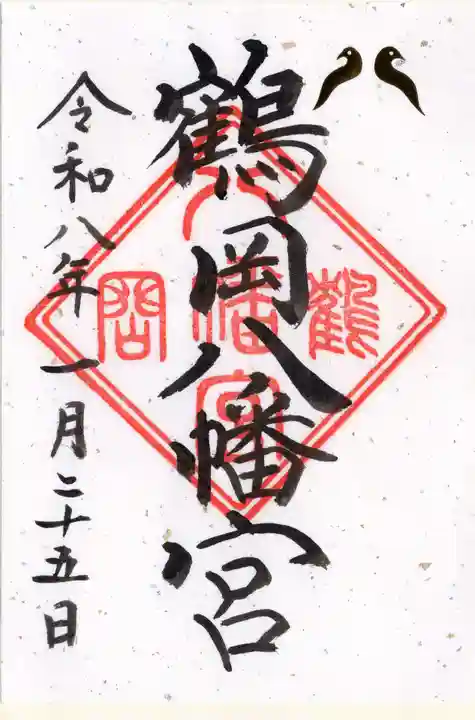 鶴岡八幡宮
令和八年一月二十五日
鶴 八幡宮 岡